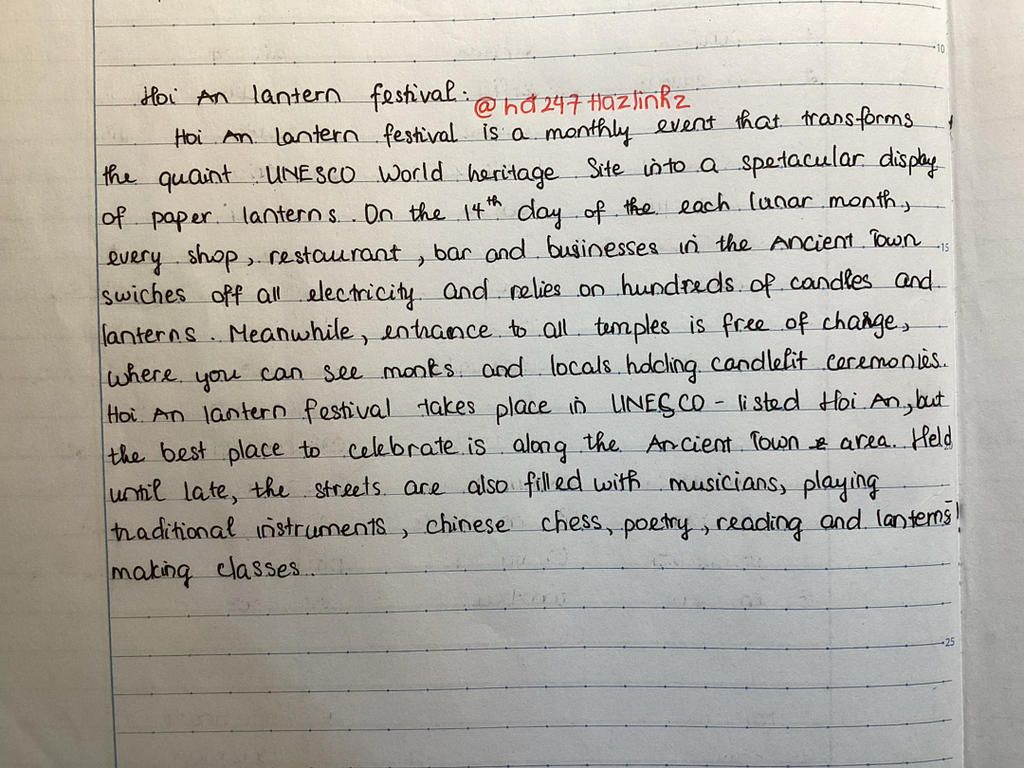 10
Hoi An lantern festival: @hd247Hazlinhz
Hoi An lantern festival is a monthly event that transforms
the quaint UNESCO World heritage Site into a spetacular display
of paper lanterns. On the 14th day of the each lunar month,
every shop, restaurant, bar and businesses in the Ancient Town
15
swiches off all electricity and relies on hundreds of candles and
lanterns. Meanwhile, entrance to all temples is free of charge,
where you can see monks and locals holding candlelit ceremonies.
Hoi An lantern festival takes place in UNESCO - listed Hoi An, but
the best place to celebrate is along the Ancient Town area. Held
until late, the streets are also filled with musicians, playing
traditional instruments, chinese chess, poetry, reading and lanterns
making classes.
25